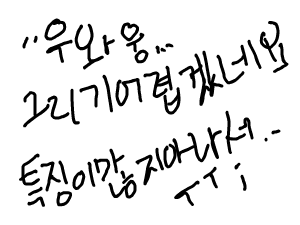 "우와웅...
그리기어렵겠네요
특징이많지아나서..
ㅜㅜ;